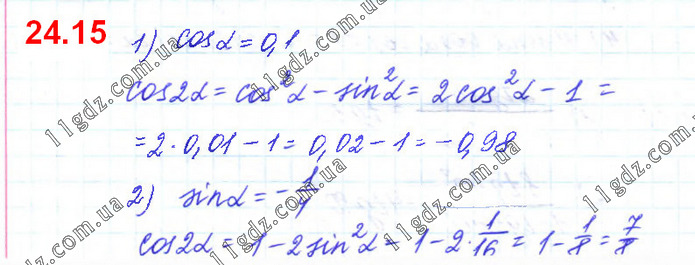 24.15
1) cosα = 0,1
cos2α = cos²α − sin²α = 2cos²α − 1 =
= 2·0,01 − 1 = 0,02 − 1 = −0,98
2) sinα = −1/4
cos2α = 1 − 2sin²α = 1 − 2·1/16 = 1 − 1/8 = 7/8
11gdz.com.ua
11gdz.com.ua
11gdz.com.ua
11gdz.com.ua
11gdz.com.ua
11gdz.com.ua